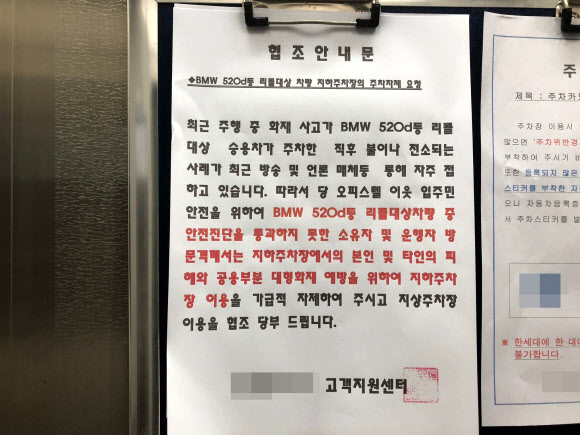 협조안내문
◆BMW 520d등 리콜대상 차량 지하주차장의 주차자제 요청
최근 주행 중 화재 사고가 BMW 520d등 리콜
대상 승용차가 주차한 직후 불이나 전소되는
사례가 최근 방송 및 언론 매체등 통해 자주 접
하고 있습니다. 따라서 당 오피스텔 이웃 입주민
안전을 위하여 BMW 520d등 리콜대상차량 중
안전진단을 통과하지 못한 소유자 및 운행자 방
문객께서는 지하주차장에서의 본인 및 타인의 피
해와 공용부분 대형화재 예방을 위하여 지하주차
장 이용을 가급적 자제하여 주시고 지상주차장
이용을 협조 당부 드립니다.
고객지원센터
주
제목 : 주차카드
주차장 이용시
않으면 '주차위반경
부착하여 주시기 바
또한 등록되지 않은
스티커를 부착한 차
오니 자동차등록증
서 주차스티커를 발
※ 한세대에 한 대
불가합니다.